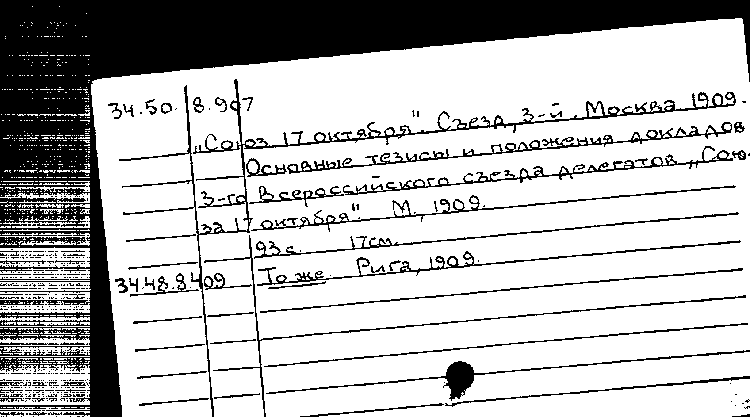 34.50. 8.907
„Союз 17 октября". Съезд, 3-й. Москва 1909.
Основные тезисы и положения докладов
3-го Всероссийского съезда делегатов „Сою-
за 17 октября". М., 1909.
93 с. 17см.
34.48.8409 То же. Рига, 1909.